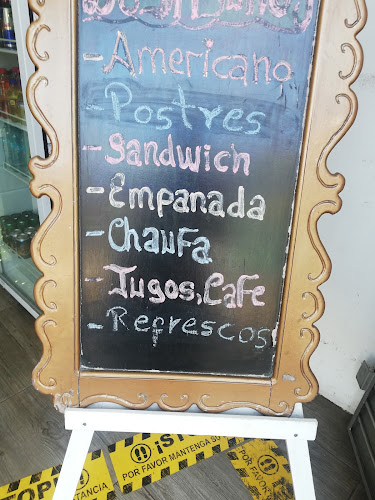 Desayunos
- Americano
- Postres
- Sandwich
- Empanada
- Chaufa
- Jugos, Cafe
- Refrescos
¡STOP
POR FAVOR MANTENGA SU
POR FAVOR MANTE
STANCIA